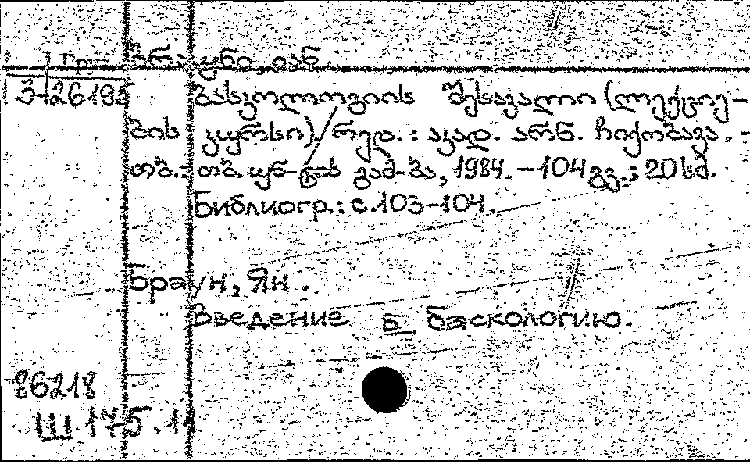 Гр. ბრაუნი, იან
3-26195 ბასკოლოგიის შესავალი (ლექციე-
ბის კურსი)/რედ.: აკად. არნ. ჩიქობავა. -
თბ.: თბ. უნ-ტის გამ-ბა, 1984. - 104 გვ.; 20 სმ.
Библиогр.: с.103-104.
Браун, Ян.
Введение в баскологию.
86218
Ш 175.11